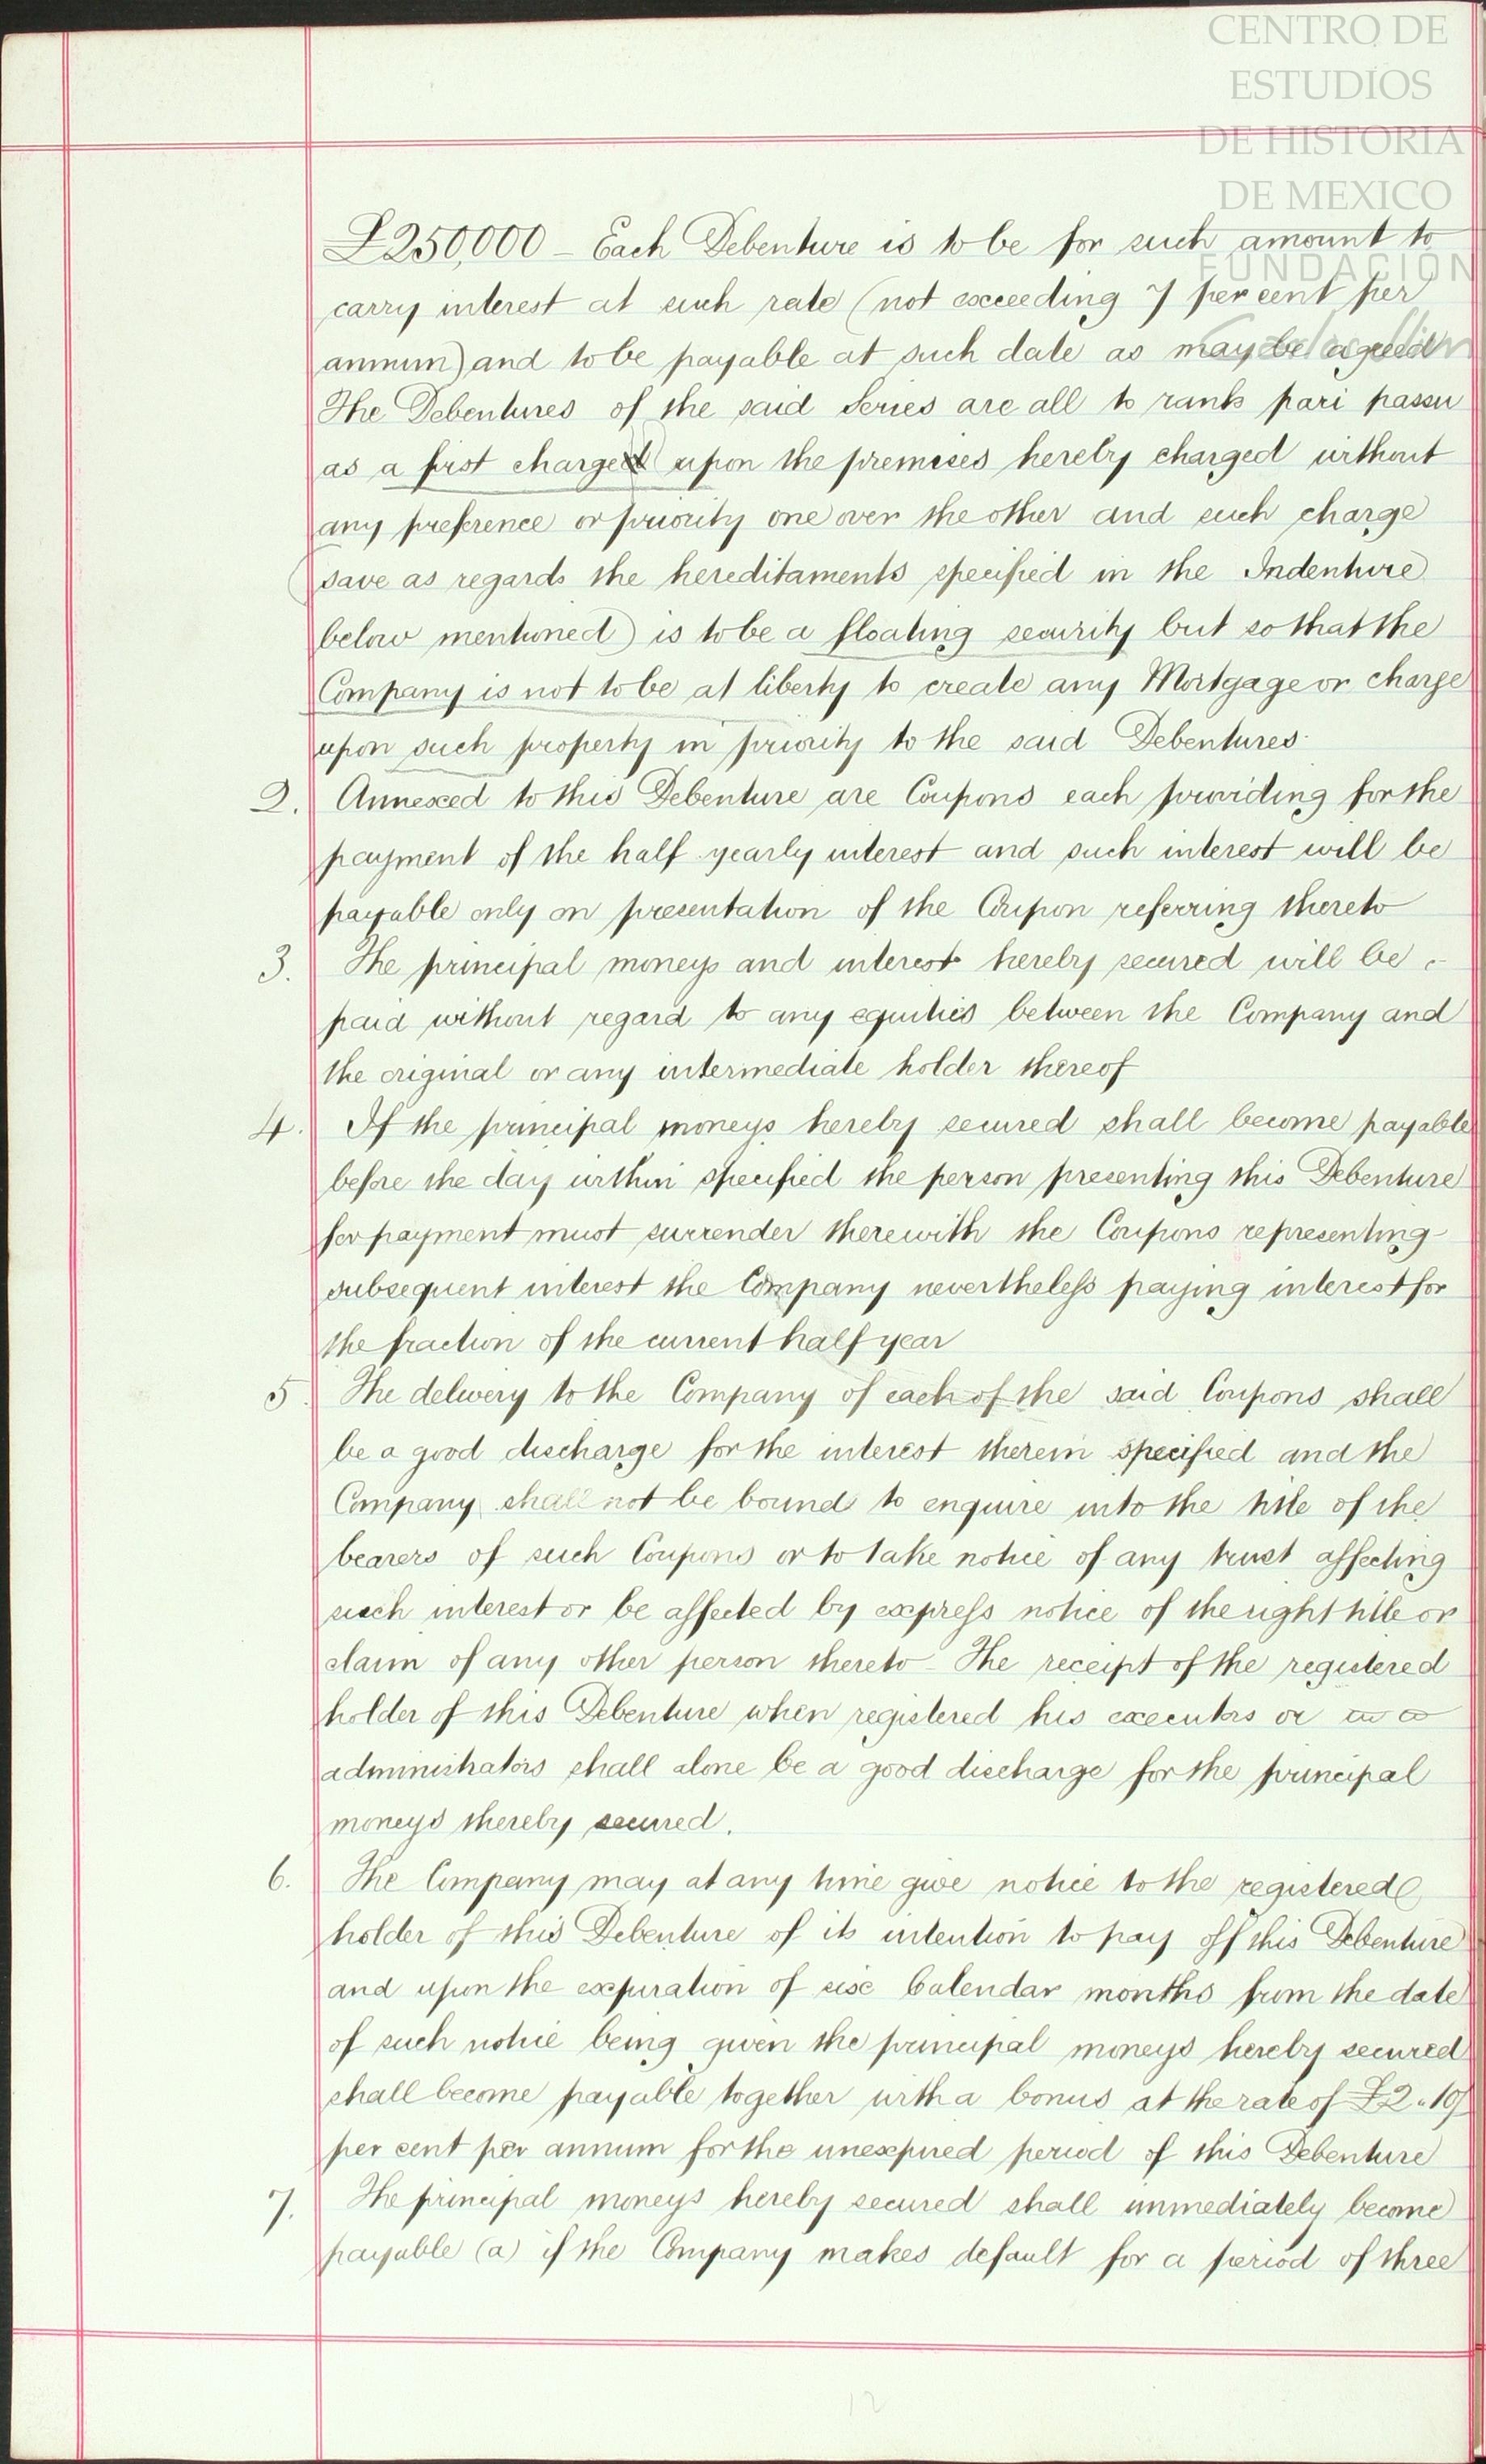 CENTRO DE
ESTUDIOS
DE HISTORIA
DE MEXICO
FUNDACION
£250,000 – Each Debenture is to be for such amount to
carry interest at such rate (not exceeding 7 per cent per
annum) and to be payable at such date as may be agreed
The Debentures of the said Series are all to rank pari passu
as a first charged upon the premises hereby charged without
any preference or priority one over the other and such charge
(save as regards the hereditaments specified in the Indenture
below mentioned) is to be a floating security but so that the
Company is not to be at liberty to create any Mortgage or charge
upon such property in priority to the said Debentures.
2. Annexed to this Debenture are Coupons each providing for the
payment of the half yearly interest and such interest will be
payable only on presentation of the Coupon referring thereto
3. The principal moneys and interest hereby secured will be
paid without regard to any equities between the Company and
the original or any intermediate holder thereof
4. If the principal moneys hereby secured shall become payable
before the day within specified the person presenting this Debenture
for payment must surrender therewith the Coupons representing
subsequent interest the Company nevertheless paying interest for
the fraction of the current half year
5. The delivery to the Company of each of the said Coupons shall
be a good discharge for the interest therein specified and the
Company shall not be bound to enquire into the title of the
bearers of such Coupons or to take notice of any trust affecting
such interest or be affected by express notice of the right title or
claim of any other person thereto – The receipt of the registered
holder of this Debenture when registered his executors or
administrators shall alone be a good discharge for the principal
moneys thereby secured.
6. The Company may at any time give notice to the registered
holder of this Debenture of its intention to pay off this Debenture
and upon the expiration of six Calendar months from the date
of such notice being given the principal moneys hereby secured
shall become payable together with a bonus at the rate of £2 " 10/
per cent per annum for the unexpired period of this Debenture
7. The principal moneys hereby secured shall immediately become
payable (a) if the Company makes default for a period of three
12